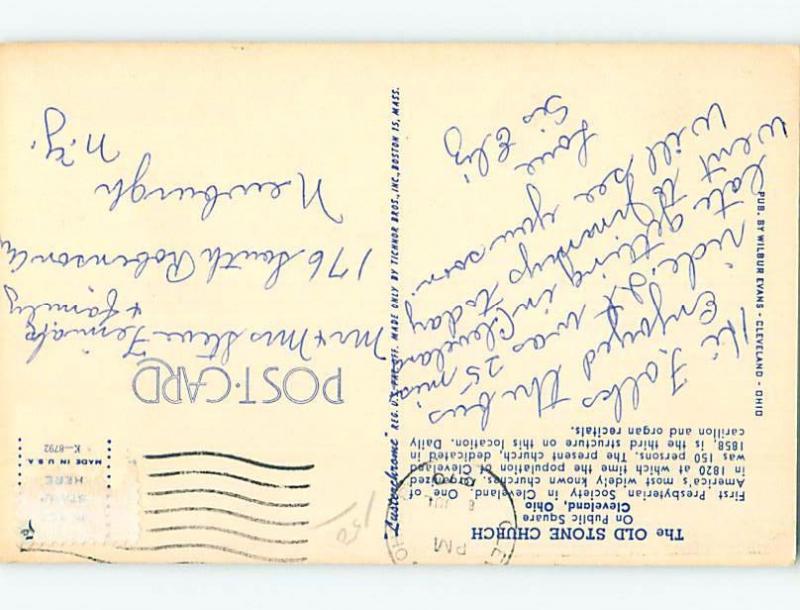 The OLD STONE CHURCH
On Public Square
Cleveland, Ohio
First Presbyterian Society in Cleveland. One of
America's most widely known churches, organized
in 1820 at which time the population of Cleveland
was 150 persons. The present church, dedicated in
1858, is the third structure on this location. Daily
carillon and organ recitals.
Hi Folks
Enjoyed the bus
ride, it was 25 min
late getting in Cleveland
went to Friendship today
will see you soon
Love
Sis Eliz
PUB. BY WILBUR EVANS - CLEVELAND - OHIO
"Lusterchrome" REG. U.S. PAT. OFF. MADE ONLY BY TICHNOR BROS., INC., BOSTON 15, MASS.
PM
8
POST-CARD
HERE
MADE IN U.S.A.
K-8792
150
Mr & Mrs Steve
& family
176 South Robinson
Newburgh
N.Y.